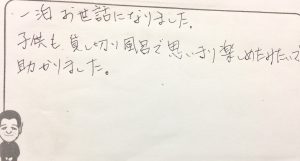 一泊お世話になりました。
子供も貸し切り風呂で思いきり楽しめたみたいで
助かりました。